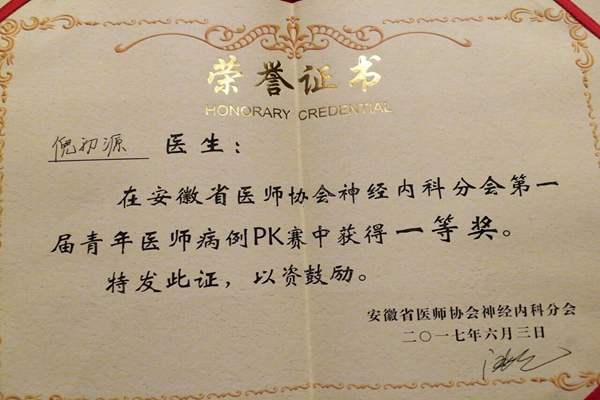 荣誉证书
HONORARY CREDENTIAL
倪初源 医生：
在安徽省医师协会神经内科分会第一
届青年医师病例PK赛中获得一等奖。
特发此证，以资鼓励。
安徽省医师协会神经内科分会
二〇一七年六月三日